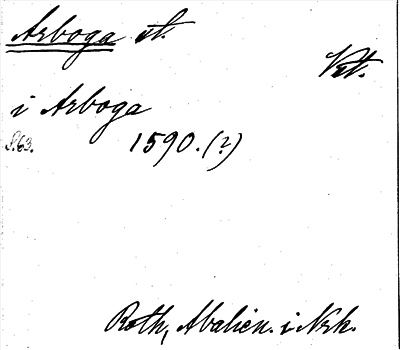 Arboga st.
Vst.
i Arboga
S.63. 1590.(?)
Roth, Abalien. i Nrk.